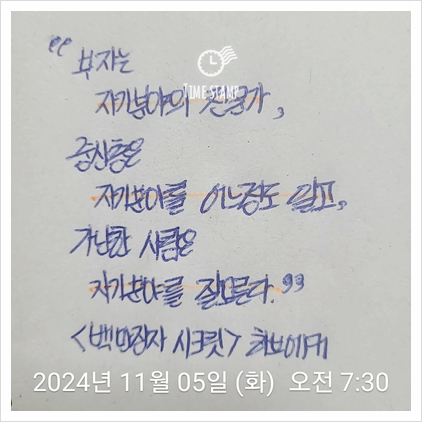 "부자는
TIME STAMP
자기분야의 전문가,
중산층은
자기분야를 어느정도 알고,
가난한 사람은
자기분야를 잘모른다."
<백만장자 시크릿> 하브에커
2024년 11월 05일 (화) 오전 7:30